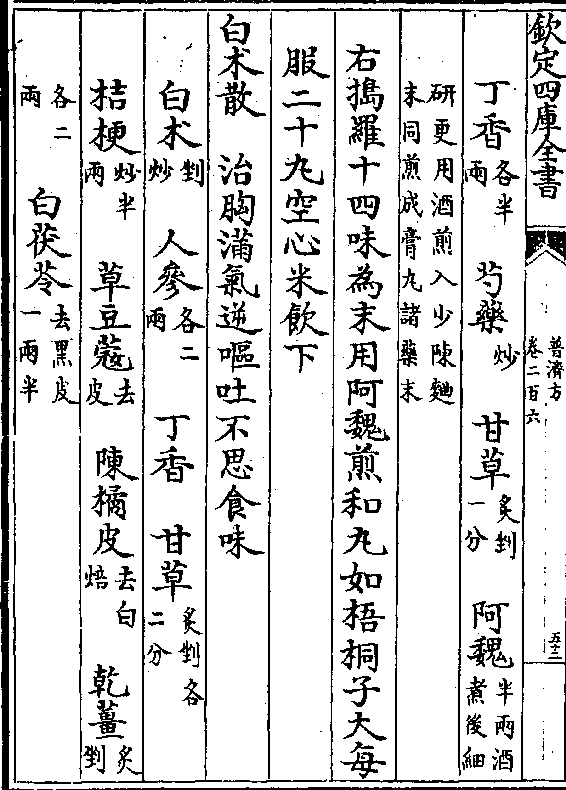 欽定四庫全書
普濟方
卷二百六
五十二
丁香各半兩 芍藥炒 甘草炙剉一分 阿魏半兩酒煮後細
研更用酒煎入少陳麵末同煎成膏丸諸藥末
右搗羅十四味為末用阿魏煎和丸如梧桐子大每
服二十丸空心米飲下
白术散 治胸滿氣逆嘔吐不思食味
白术剉炒 人參各二兩 丁香 甘草炙剉各二分
桔梗炒半兩 草豆蔻去皮 陳橘皮去白焙 乾薑炙剉
各二兩 白茯苓去黑皮一兩半